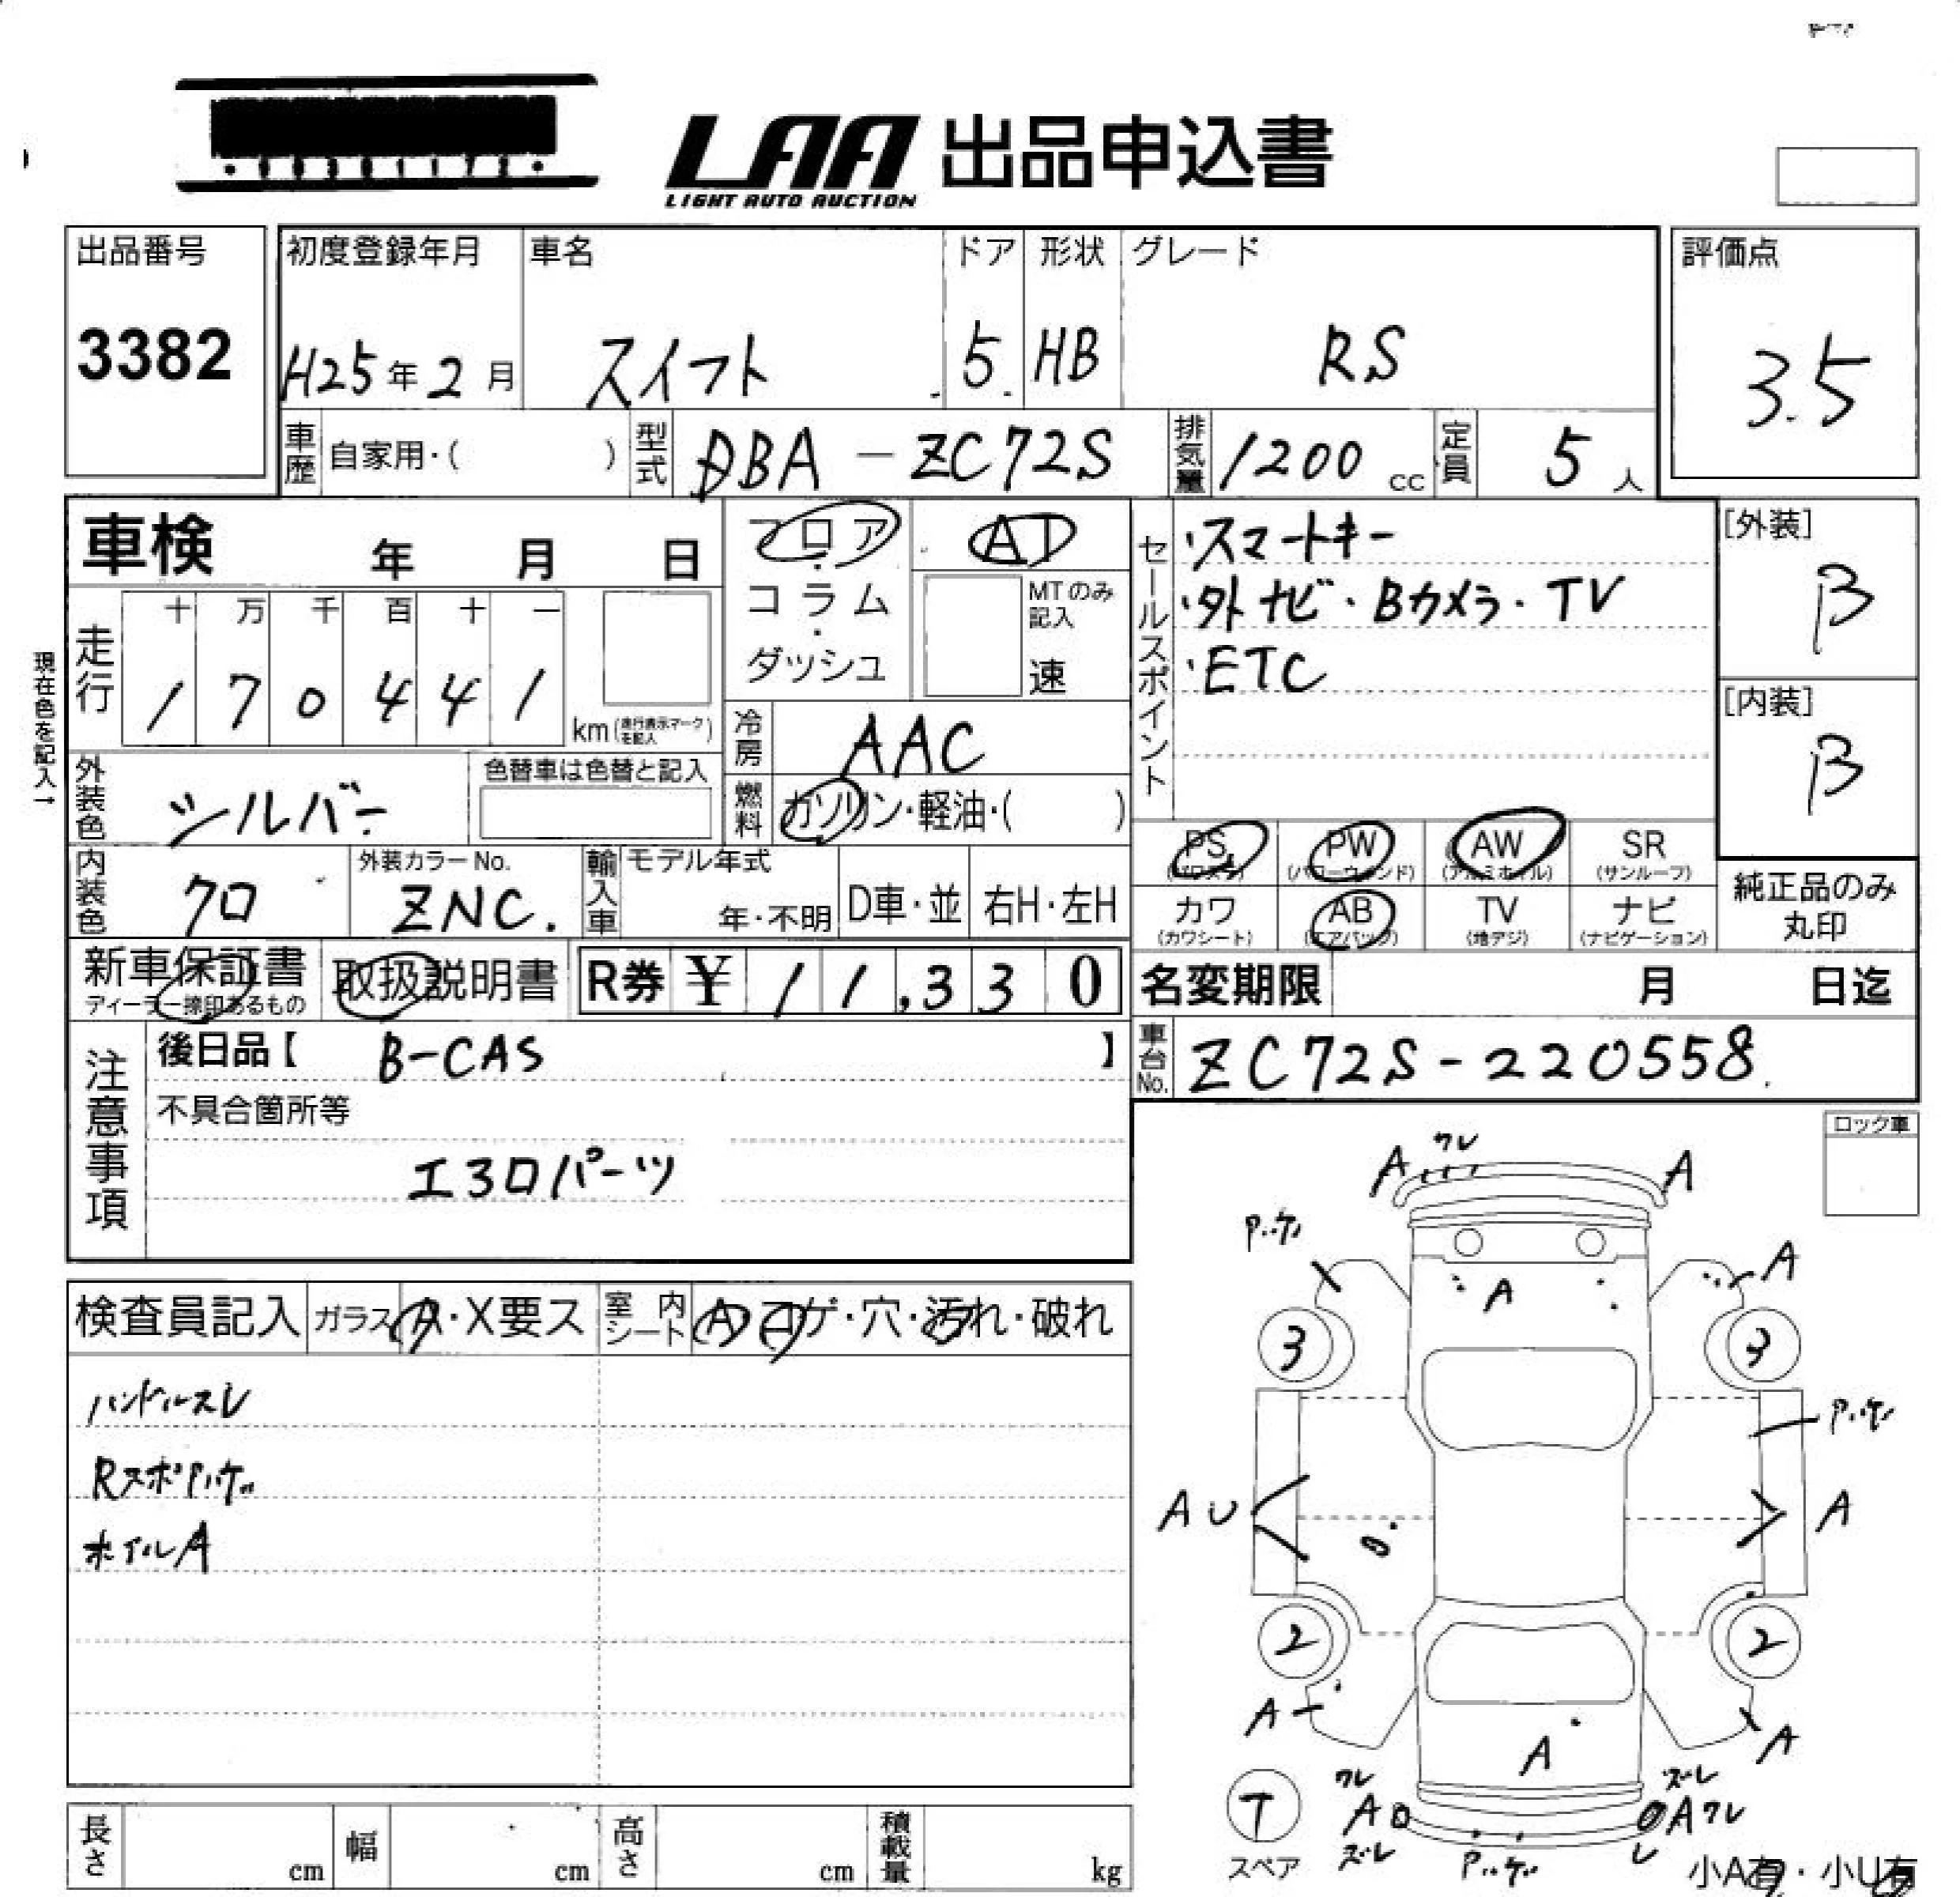 LAA 出品申込書
LIGHT AUTO AUCTION
出品番号
3382
初度登録年月
H25年2月
車名
スイフト
ドア
5
形状
HB
グレード
RS
評価点
3.5
車歴
自家用・( )
型式
DBA-ZC72S
排気量
1200cc
定員
5人
車検 年 月 日
フロア・コラム・ダッシュ
AT
MTのみ記入
速
セールスポイント
・スマートキー
・外ナビ・Bカメラ・TV
・ETC
[外装]
B
[内装]
B
現在色を記入→
走行
十 万 千 百 十 一
1 7 0 4 4 1
km(走行表示マークを記入)
冷房
AAC
外装色
シルバー
色替車は色替と記入
燃料
ガソリン・軽油・( )
PS
(パワステ)
PW
(パワーウィンド)
AW
(アルミホイル)
SR
(サンルーフ)
カワ
(カワシート)
AB
(エアバッグ)
TV
(地デジ)
ナビ
(ナビゲーション)
純正品のみ
丸印
内装色
クロ
外装カラーNo.
ZNC.
輸入車
モデル年式
年・不明
D車・並
右H・左H
新車保証書
ディーラー捺印あるもの
取扱説明書
R券 ¥11,330
名変期限 月 日迄
注意事項
後日品【 B-CAS 】
不具合箇所等
エヨロパーツ
車台No.
ZC72S-220558.
ロック車
検査員記入
ガラス
A・X要ス
室内シート
A コゲ・穴・汚れ・破れ
ハンドルスレ
Rスポハゲ
ホイルA
A ワレ A
A
A
3
3
A
AU
A
2
2
A
A
A
ワレ
A
ズレ
ズレ
Aワレ
T
スペア
小A有・小U有
長さ cm
幅 cm
高さ cm
積載量 kg